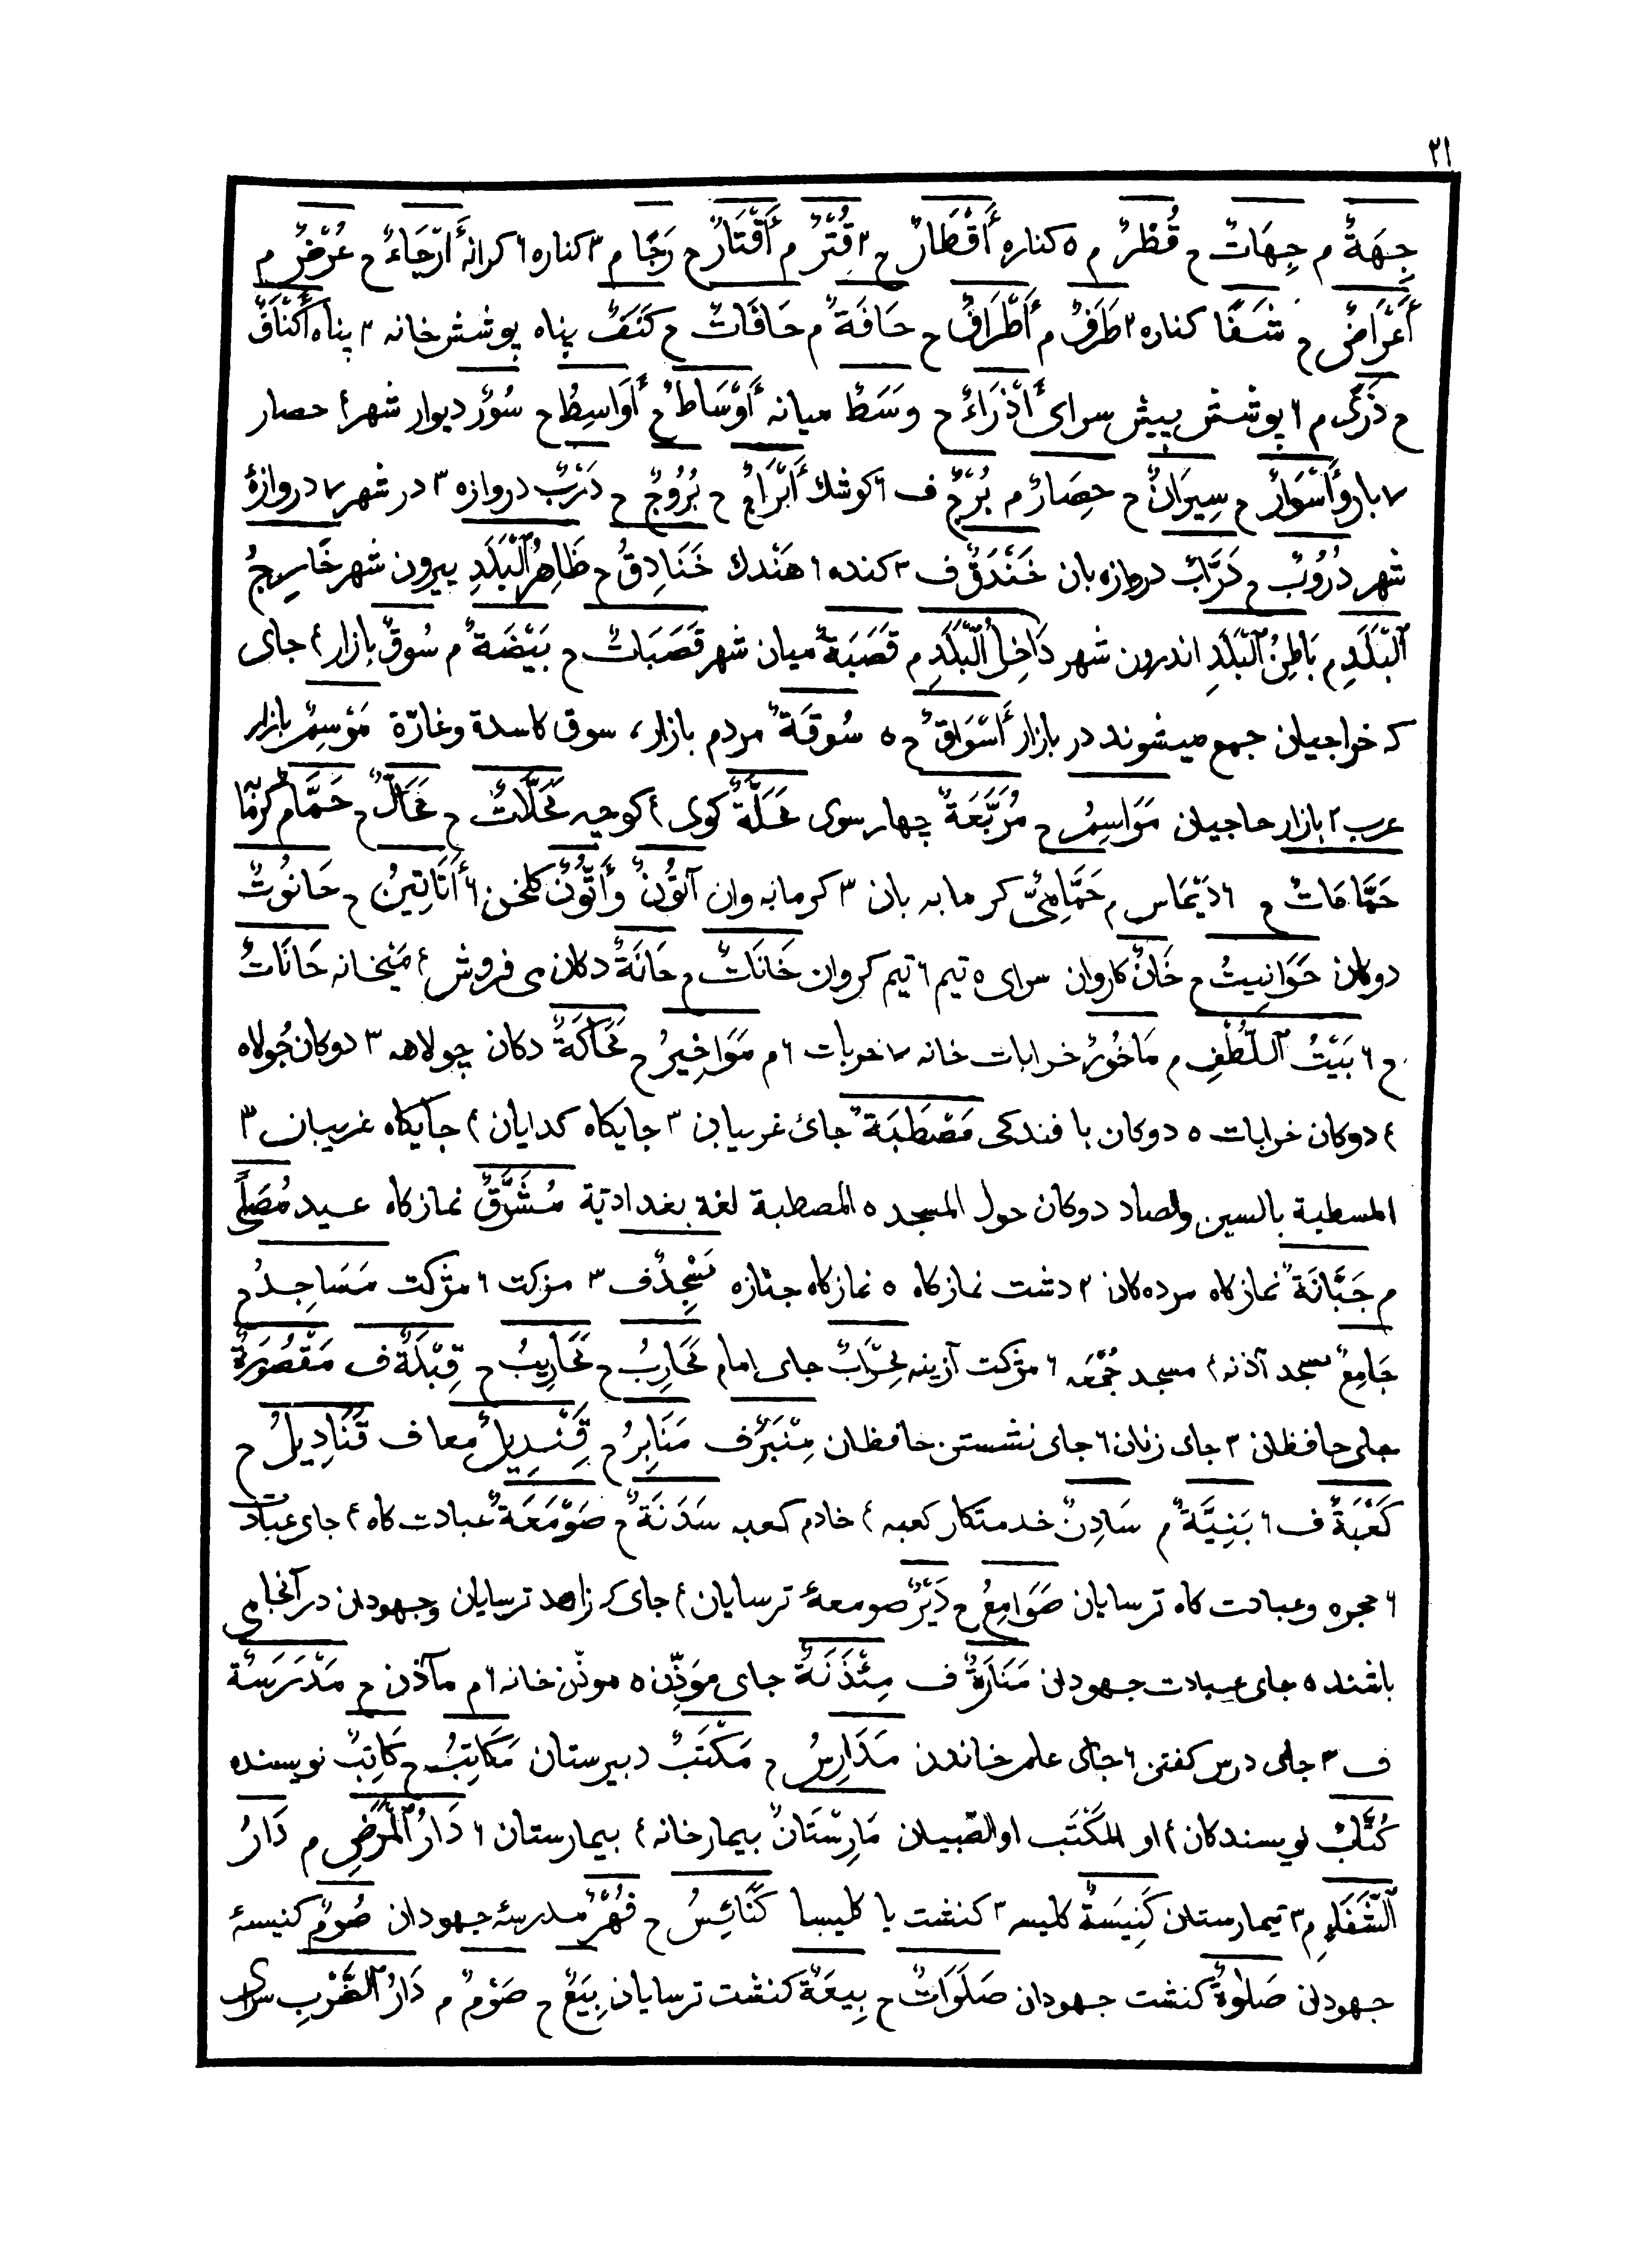 ٢١
جِهَةٌ م جِهَاتٌ ح قُطْرٌ م ٥ كناره أَقْطَارٌ ح ٣ قُتْرٌ م أَقْتَارٌ ح رَجًا م ٣ كناره ٦ كرانه أَرْجَاءٌ ح عُرْضٌ م
أَعْرَاضٌ ح شَفًا كناره ٣ طَرَفٌ م أَطْرَافٌ ح حَافَةٌ م حَافَاتٌ ح كَنَفٌ پناه پوشش خانه ٣ پناه أَكْنَافٌ
ح ذَرًى م ٦ پوشش پیش سرای أَذْرَاءٌ ح وَسَطٌ میانه أَوْسَاطٌ ح أَوَاسِطُ ح سُوْرٌ دیوار شهر ٤ حصار
٧ بارو أَسْوَارٌ ح سِيرَانٌ ح حِصَارٌ م بُرْجٌ ف ٦ كوشك أَبْرَاجٌ ح بُرُوجٌ ح دَرْبٌ دروازه ٣ در شهر ٧ دروازهٔ
شهر دُرُوبٌ ح دَرَّابٌ دروازه بان خَنْدَقٌ ف ٣ كنده ٦ هَنْدك خَنَادِقُ ح ظَاهِرُ ٱلْبَلَدِ بیرون شهر خَارِجُ
ٱلْبَلَدِ م بَاطِنُ ٱلْبَلَدِ اندرون شهر دَاخِلُ ٱلْبَلَدِ م قَصَبَةٌ میان شهر قَصَبَاتٌ ح بَيْضَةٌ م سُوقٌ بازار ٤ جای
که خراجیان جمع میشوند در بازار أَسْوَاقٌ ح ٥ سُوقَةٌ مردم بازار، سوق كاسدة وغارّة مَوْسِمٌ بازار
عرب ٢ بازار حاجیان مَوَاسِمُ ح مُرَبَّعَةٌ چهار سوی مَحَلَّةٌ كوی ٤ كوچه مَحَلَّاتٌ ح مَحَالٌّ ح حَمَّامٌ گرما
حَمَّامَاتٌ ح ٦ دَيْمَاس م حَمَّامِيٌّ كرمابه بان ٣ كرمابه وان آتُوْنٌ وأَتُّوْنٌ كلخن ٦ أَتَاتِيْنُ ح حَانُوتٌ
دوكان حَوَانِيتُ ح خَانٌ كاروان سرای ٥ تیم ٦ تیم كروان خَانَاتٌ ح حَانَةٌ دكان می فروش ٤ میخانه حَانَاتٌ
ح ٦ بَيْتُ ٱللُّطْفِ م مَاخُوْرٌ خرابات خانه ٧ خربات ٦ م مَوَاخِيْرُ ح مَحَاكَةٌ دكان چولاهه ٣ دوكان جُولاه
٤ دوكان خرابات ٥ دوكان بافندكی مَصْطَبَةٌ جای غریبان ٣ جایكاه كدایان ٤ جایكاه غریبان ٣
المسطبة بالسین والصاد دوكان حول المسجد ٥ المصطبة لغة بغدادیّة مُشَرَّقٌ نمازكاه عید مُصَلًّى
م جَبَّانَةٌ نمازكاه مرده كان ٢ دشت نمازكاه ٥ نمازكاه جنازه مَسْجِدٌ ف ٣ مزكت ٦ مژكت مَسَاجِدُ ح
جَامِعٌ مسجد آذنه ٤ مسجد جُمْعَه ٦ مژكت آزینه مِحْرَابٌ جای امام مَحَارِبُ ح مَحَارِيبُ ح قِبْلَةٌ ف مَقْصُوْرَةٌ
جای حافظان ٣ جای زنان ٦ جای نشستن حافظان مِنْبَرٌ ف مَنَابِرُ ح قِنْدِيلٌ معا ف قَنَادِيلُ ح
كَعْبَةٌ ف ٦ بَنِيَّةٌ م سَادِنٌ خدمتكار كعبه ٤ خادم كعبه سَدَنَةٌ ح صَوْمَعَةٌ عبادت كاه ٤ جای عبادت
٦ حجره وعبادت كاه ترسایان صَوَامِعُ ح دَيْرٌ صومعهٔ ترسایان ٤ جای كه زاهد ترسایان وجهودان در آنجا می
باشند ٥ جای عبادت جهودان مَنَارَةٌ ف مِئْذَنَةٌ جای موَذِّن ٥ موذّن خانه ٦ م مآذن ح مَدْرَسَةٌ
ف ٣ جای درس كفتن ٦ جای علم خاندن مَدَارِسُ ح مَكْتَبٌ دبیرستان مَكَاتِبُ ح كَاتِبٌ نویسنده
كُتَّابٌ نویسندكان ٤ او المَكْتَب او الصّبیان مَارِسْتَانٌ بیمارخانه ٤ بیمارستان ٦ دَارُ ٱلْمَرْضِ م دَارُ
ٱلشِّفَاءِ م ٣ تیمارستان كَنِيسَةٌ كلیسه ٣ كنشت یا كلیسا كَنَائِسُ ح فُهْرٌ مدرسهٔ جهودان صُومٌ كنیسهٔ
جهودان صَلٰوةٌ كنشت جهودان صَلَوَاتٌ ح بِيعَةٌ كنشت ترسایان بِيَعٌ ح صَوْمٌ م دَارُ ٱلضَّرْبِ سرای